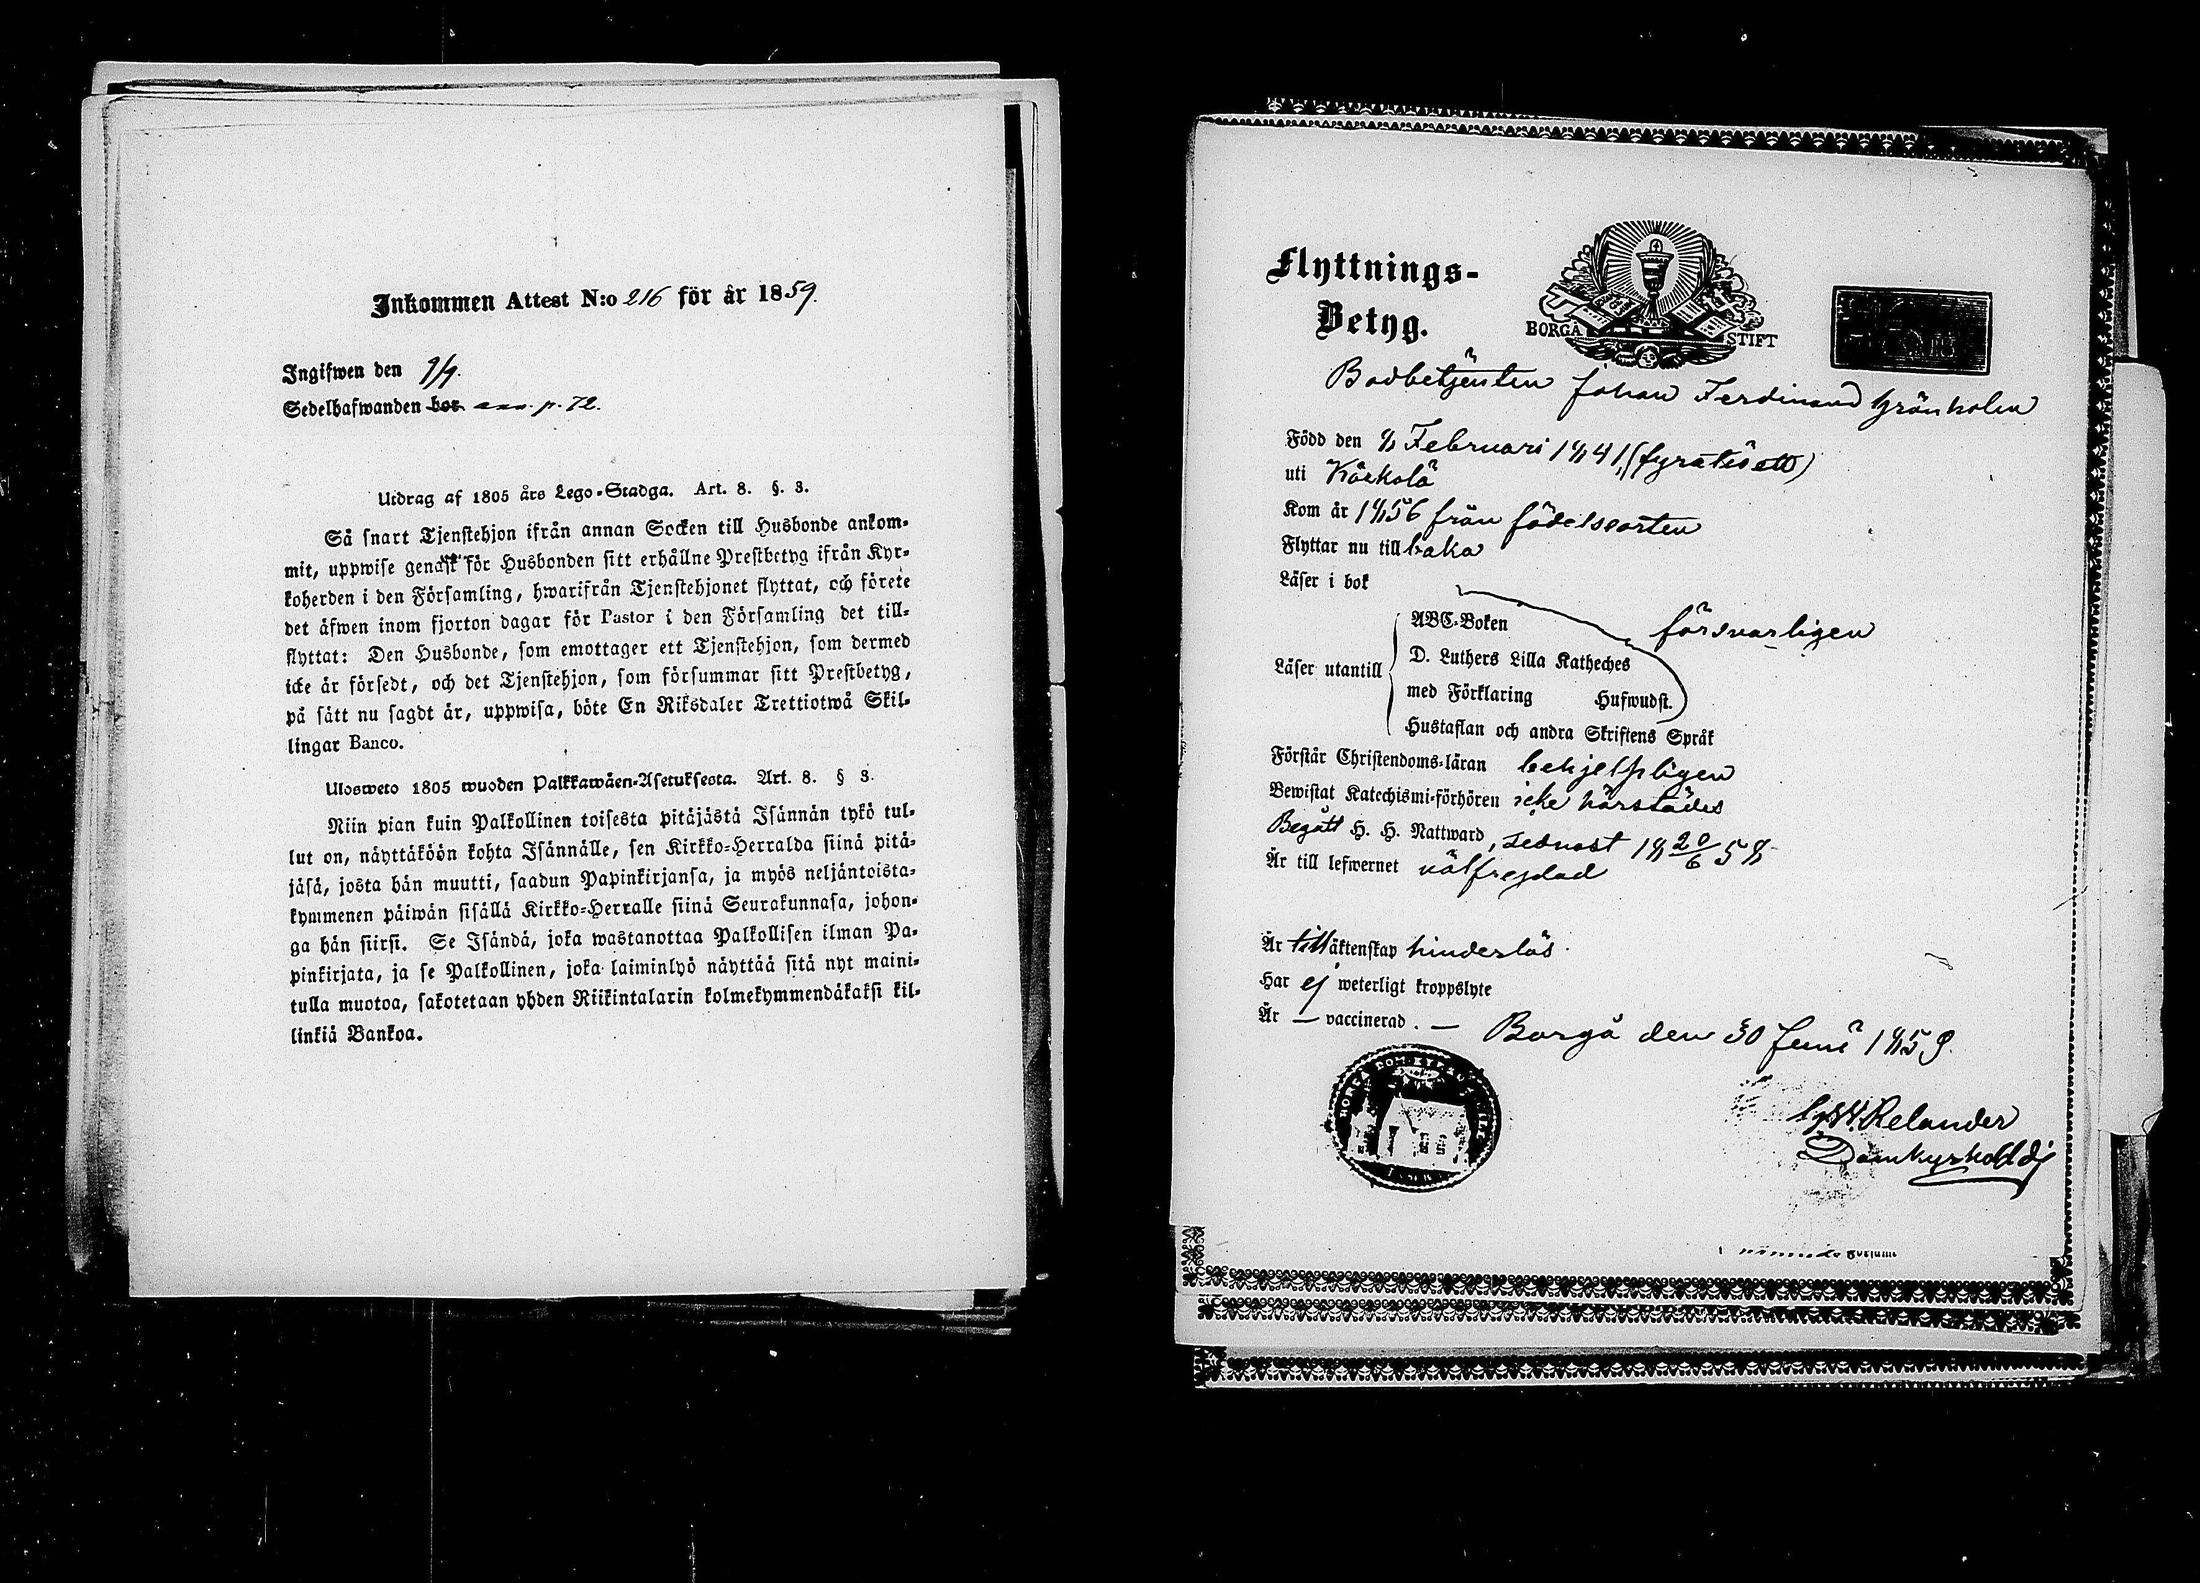 Inkommen Attest N:o 216 för år 1859.
Ingifwen den 9/9.
Sedelhafwanden bor ann. p. 72.
Utdrag af 1805 års Lego-Stadga. Art. 8. §. 3.
Så snart Tjenstehjon ifrån annan Socken till Husbonde ankom-
mit, uppwise genast för Husbonden sitt erhållne Prestbetyg ifrån Kyr-
koherden i den Församling, hwarifrån Tjenstehjonet flyttat, och förete
det äfwen inom fjorton dagar för Pastor i den Församling det till-
flyttat: Den Husbonde, som emottager ett Tjenstehjon, som dermed
icke är försedt, och det Tjenstehjon, som försummar sitt Prestbetyg,
på sätt nu sagdt är, uppwisa, böte En Riksdaler Trettiotwå Skil-
lingar Banco.
Ulosweto 1805 wuoden Palkkawäen-Asetuksesta. Art. 8. § 3.
Niin pian kuin Palkollinen toisesta pitäjästä Isännän tykö tul-
lut on, näyttäköön kohta Isännälle, sen Kirkko-Herralda siinä pitä-
jäsä, josta hän muutti, saadun Papinkirjansa, ja myös neljäntoista-
kymmenen päiwän sisällä Kirkko-Herralle siinä Seurakunnasa, johon-
ga hän siirsi. Se Isändä, joka wastanottaa Palkollisen ilman Pa-
pinkirjata, ja se Palkollinen, joka laiminlyö näyttää sitä nyt maini-
tulla muotoa, sakotetaan yhden Riikintalarin kolmekymmendäkaksi kil-
linkiä Bankoa.
Flyttnings-
Betyg.
BORGÅ STIFT
Bodbetjenten Johan Ferdinand Grönholm
Född den 8 Februari 1841, (fyratioett)
uti Kärkölä
Kom år 1856 från födelseorten
Flyttar nu tillbaka
Läser i bok
ABC-Boken
försvarligen
Läser utantill
D. Luthers Lilla Katheches
med Förklaring Hufwudst.
Hustaflan och andra Skriftens Språk
Förstår Christendoms-läran behjelpligen
Bewistat Katechismi-förhören icke härstädes
Begått H. H. Nattward, sednast 18 20/6 58
Är till lefwernet välfrejdad
Är till äktenskap hinderlös.
Har ej weterligt kroppslyte
Är — vaccinerad. —
Borgå den 30 Juni 1859.
Relander